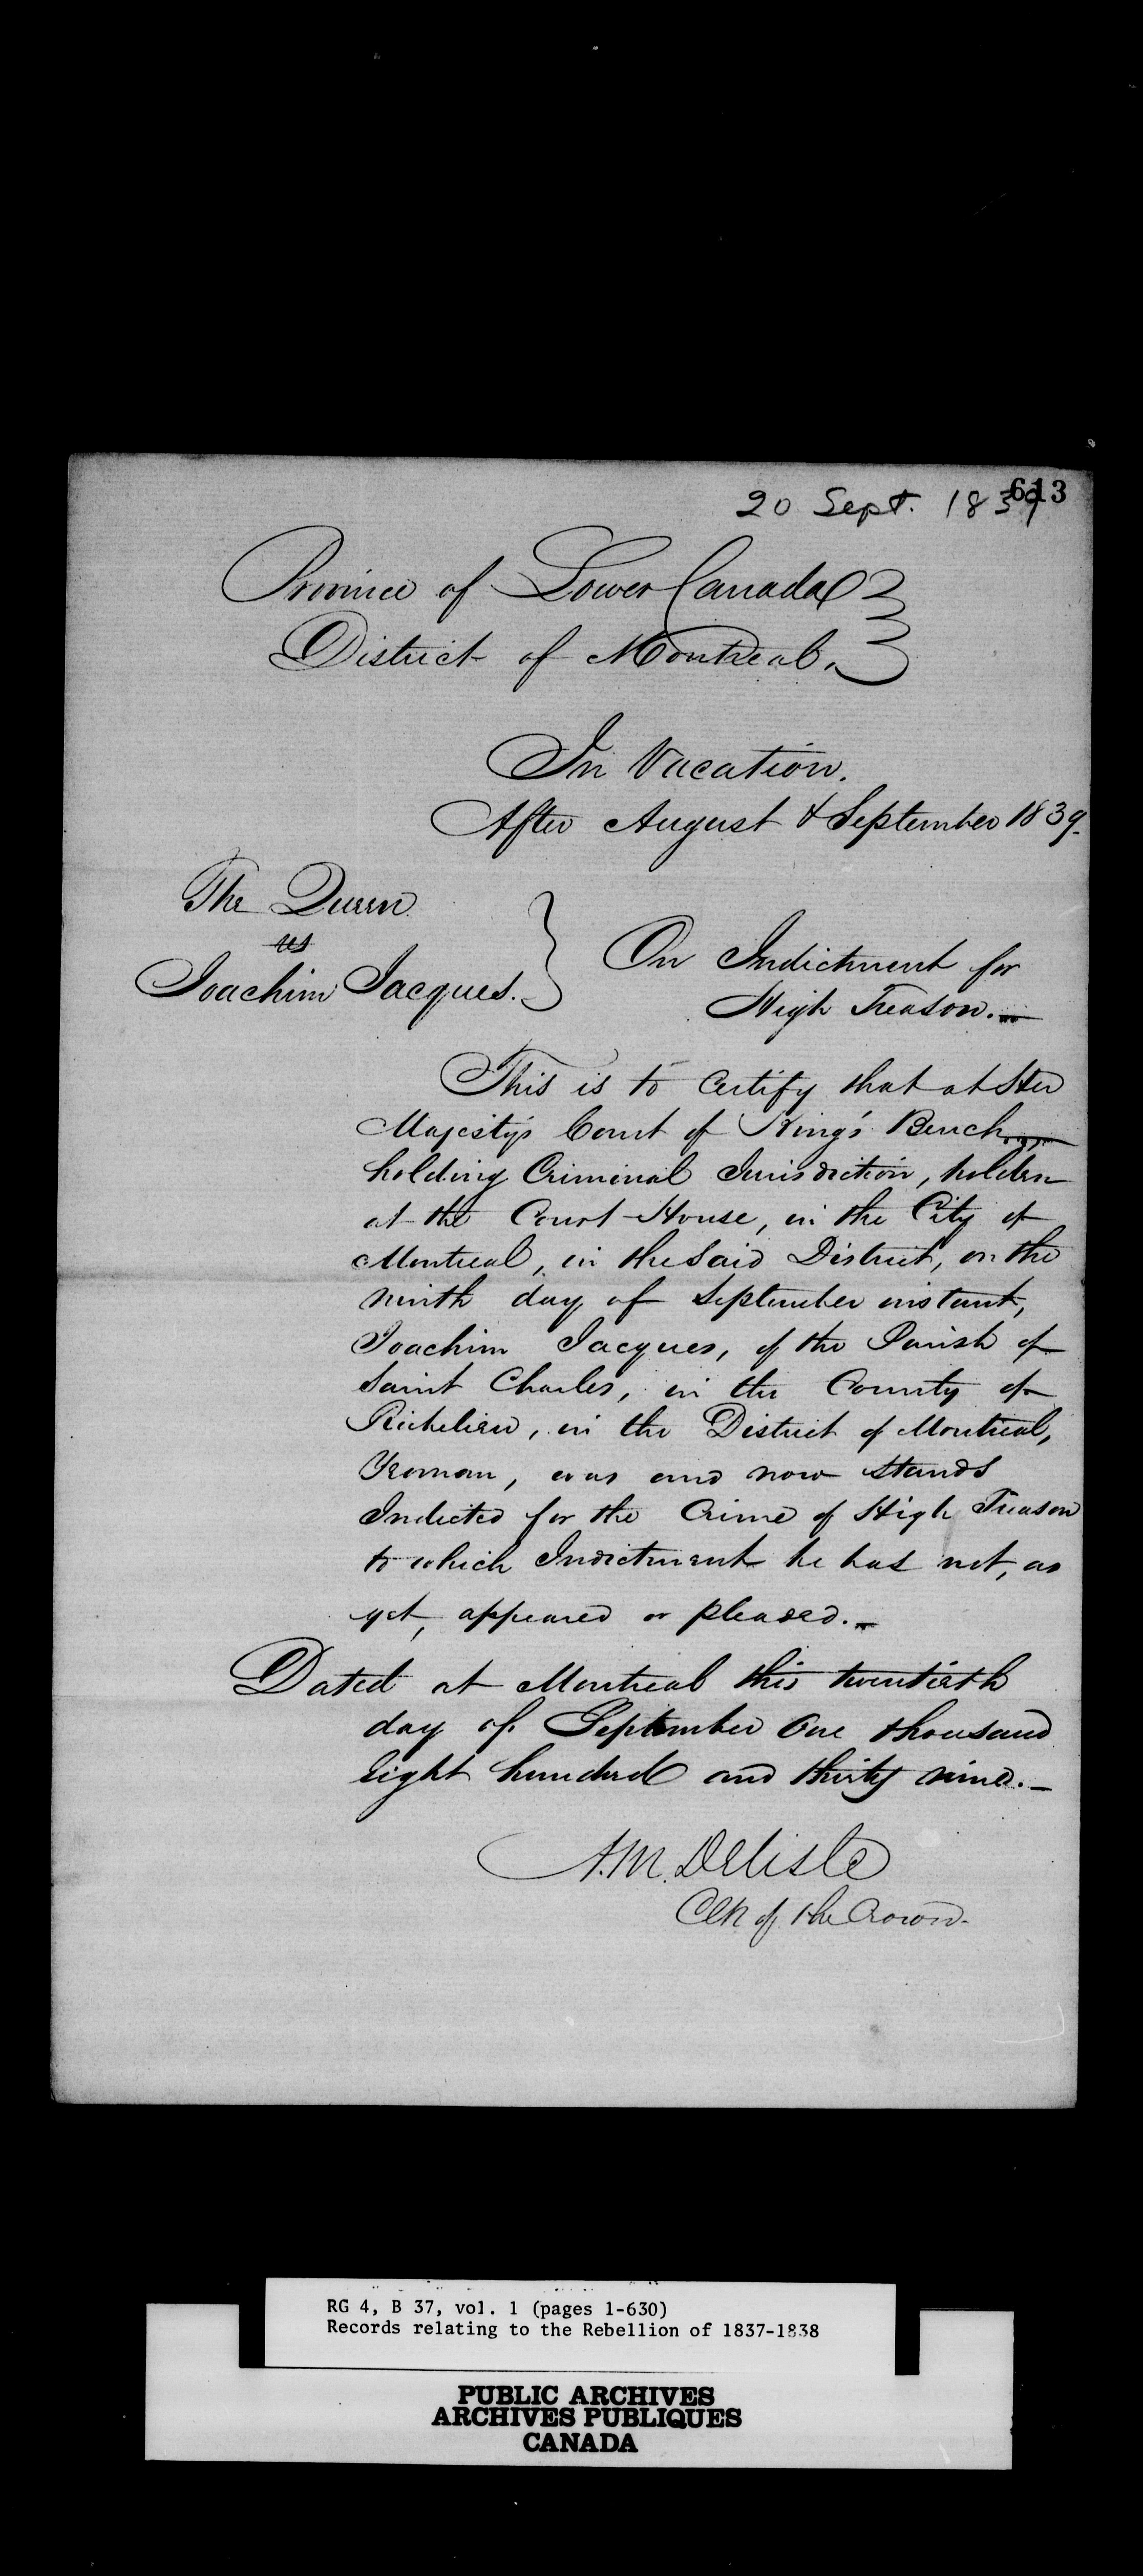 613
20 Sept. 1839
Province of Lower Canada
District of Montreal.
In Vacation.
After August & September 1839.
The Queen
vs
Joachim Jacques.
On Indictment for
High Treason.
This is to Certify that at Her
Majesty's Court of King's Bench
holding Criminal Jurisdiction, holden
at the Court House, in the City of
Montreal, in the said District, on the
ninth day of September instant,
Joachim Jacques, of the Parish of
Saint Charles, in the County of
Richelieu, in the District of Montreal,
Yeoman, was and now stands
Indicted for the Crime of High Treason
to which Indictment he has not, as
yet, appeared or pleaded.
Dated at Montreal this twentieth
day of September One thousand
Eight hundred and thirty nine.
A.M. Delisle
Clk of the Crown.
RG 4, B 37, vol. 1 (pages 1-630)
Records relating to the Rebellion of 1837-1838
PUBLIC ARCHIVES
ARCHIVES PUBLIQUES
CANADA